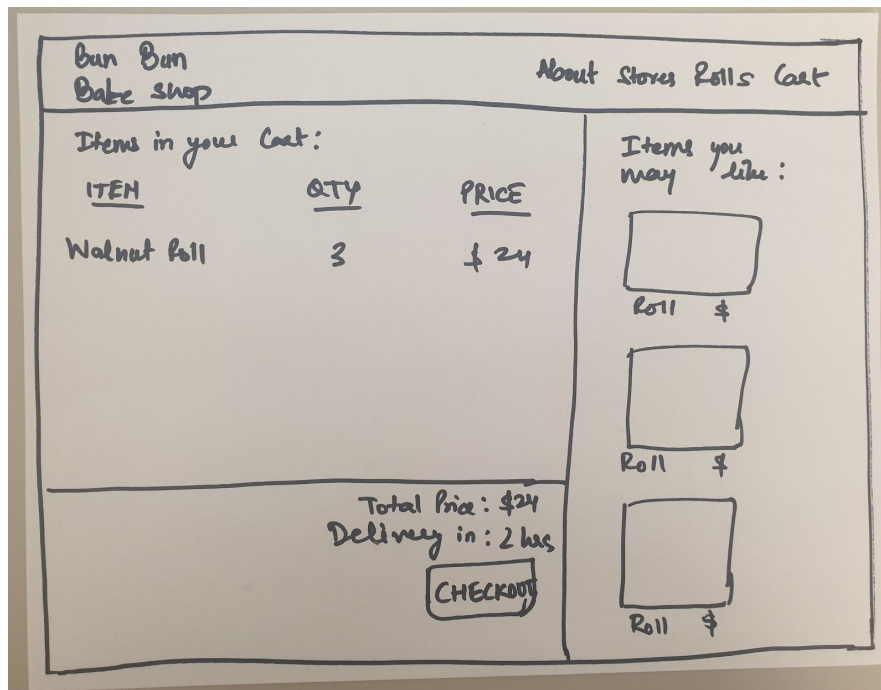 Bun Bun
Bake Shop
About Stores Rolls Cart
Items in your Cart:
ITEM QTY PRICE
Walnut Roll 3 $24
Total Price: $24
Delivery in: 2 hrs
CHECKOUT
Items you
may like:
Roll $
Roll $
Roll $